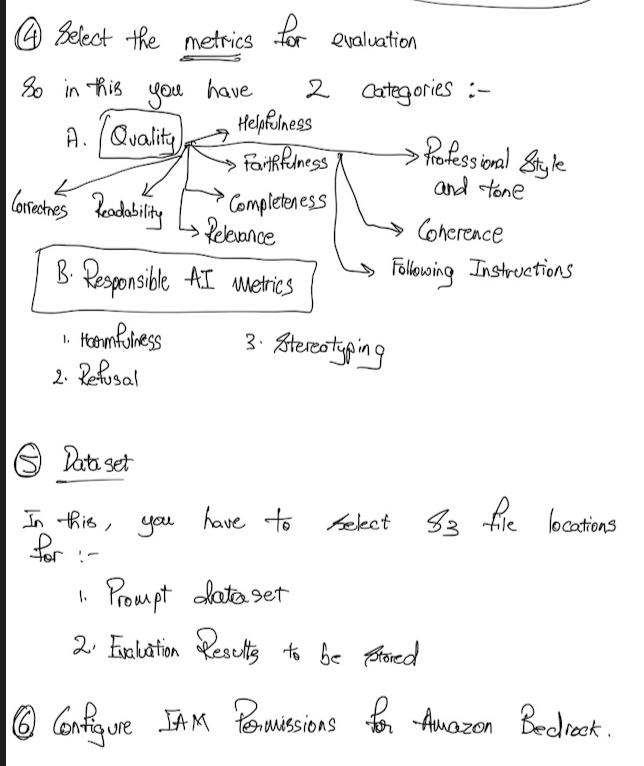 ④ Select the metrics for evaluation
So in this you have 2 categories :-
A. Quality
Helpfulness
Faithfulness
Completeness
Relevance
Readability
Correctnes
Professional Style
and tone
Coherence
Following Instructions
B. Responsible AI metrics
1. Harmfulness
2. Refusal
3. Stereotyping
⑤ Dataset
In this, you have to select S3 file locations
for :-
1. Prompt dataset
2. Evaluation Results to be stored
⑥ Configure IAM Permissions for Amazon Bedrock.